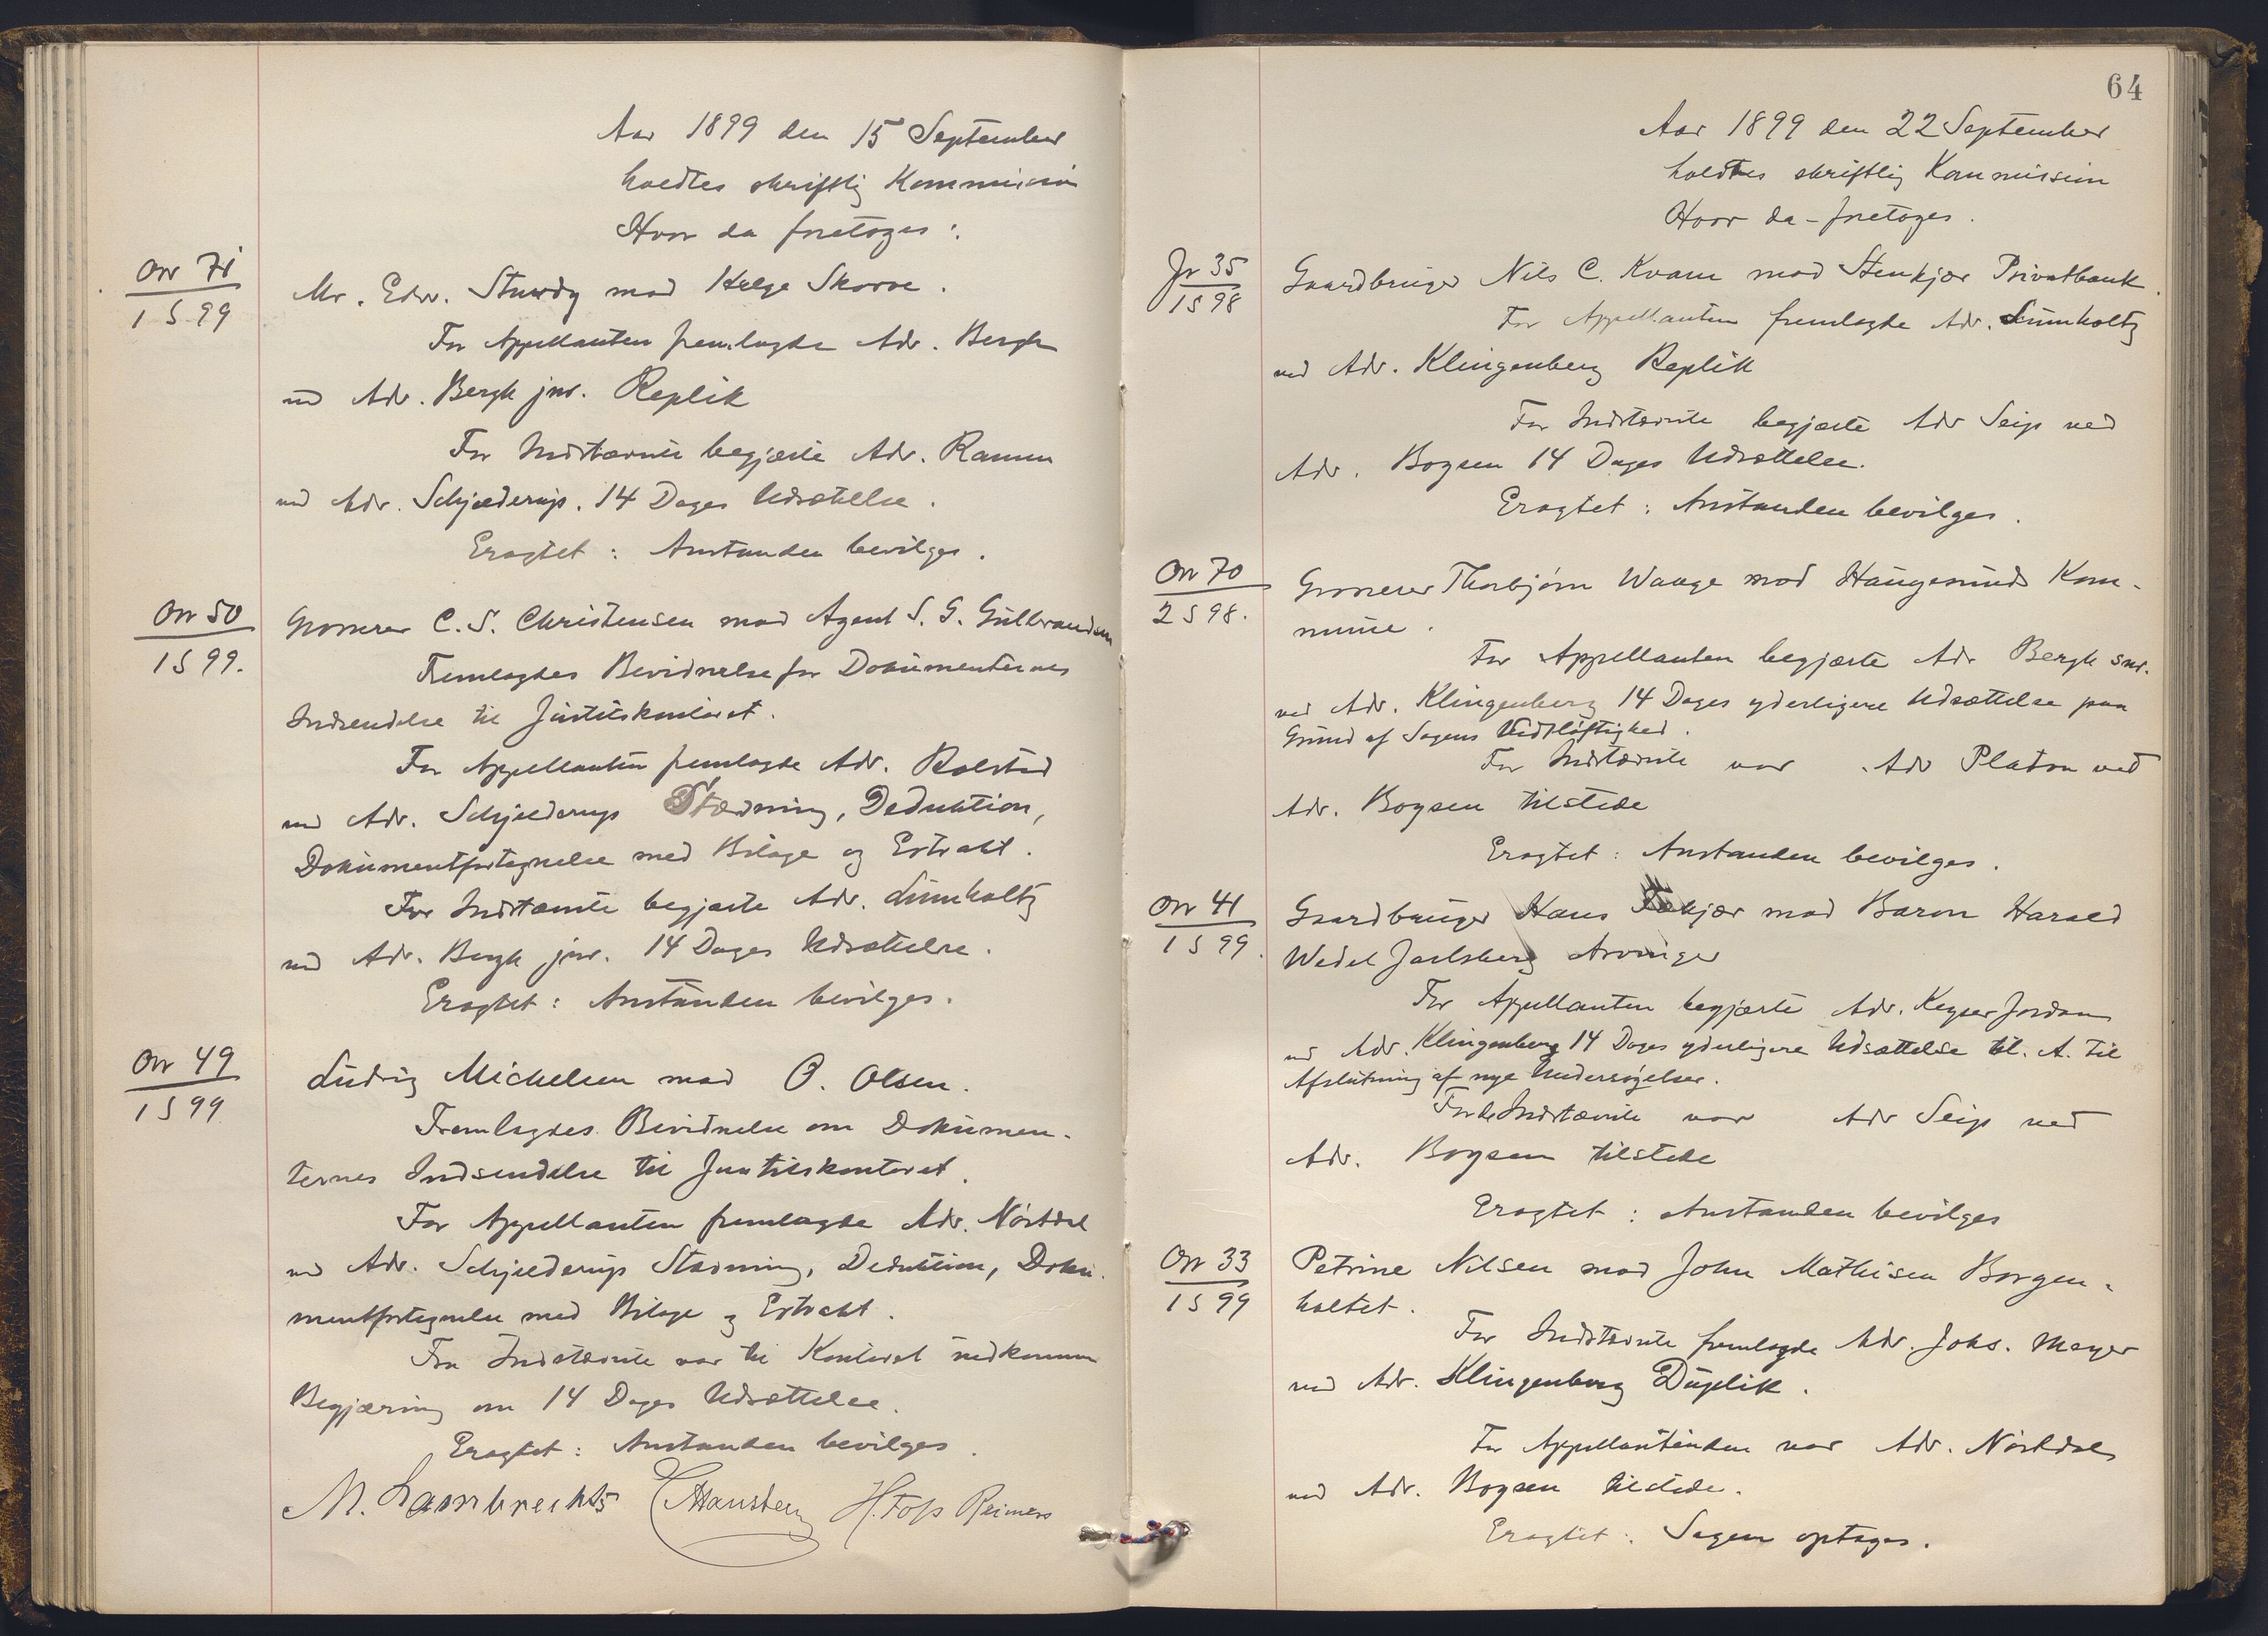 Aar 1899 den 15 September
holdtes skriftlig Kommission
Hvor da foretoges:
Or 71
1 S 99
Mr. Edw. Sturdy mod Helge Skovve.
For Appellanten fremlagde Adv. Bergh
ved Adv. Bergh jnr. Replik
For Indstævnte begjærte Adv. Ramm
ved Adv. Schjelderup. 14 Dages Udsættelse.
Eragtet: Anstanden bevilges.
Or 50
1 S 99.
Grosserer C. S. Christensen mod Agent S. G. Gulbrandsen
Fremlagdes Bevidnelse for Dokumenternes
Indsendelse til Justitskontoret.
For Appellanten fremlagde Adv. Rolstad
ved Adv. Schjelderup Stævning, Deduktion,
Dokumentfortegnelse med Bilage og Extrakt.
For Indstævnte begjærte Adv. Lumholtz
ved Adv. Bergh jnr. 14 Dages Udsættelse.
Eragtet: Anstanden bevilges.
Or 49
1 S 99
Ludvig Michelsen mod O. Olsen.
Fremlagdes Bevidnelse om Dokumen-
ternes Indsendelse til Justitskontoret.
For Appellanten fremlagde Adv. Nørdal
ved Adv. Schjelderup Stævning, Deduktion, Doku-
mentfortegnelse med Bilage og Extrakt.
Fra Indstævnte var til Kontoret indkommen
Begjæring om 14 Dages Udsættelse.
Eragtet: Anstanden bevilges.
M. Lambrechts Hansteen H. Foss Reimers
64
Aar 1899 den 22 September
holdtes skriftlig Kommission
Hvor da foretoges.
Jr 35
1 S 98
Gaardbruger Nils C. Kvam mod Stenkjær Privatbank.
For Appellanten fremlagde Adv. Lumholtz
ved Adv. Klingenberg Replik
For Indstævnte begjærte Adv Seip ved
Adv. Boysen 14 Dages Udsættelse.
Eragtet: Anstanden bevilges.
Or 70
2 S 98.
Grosserer Thorbjørn Waage mod Haugesunds Kom-
mune.
For Appellanten begjærte Adv Bergh snr.
ved Adv. Klingenberg 14 Dages yderligere Udsættelse paa
Grund af Sagens Vidtløftighed.
For Indstævnte var Adv Platou ved
Adv. Boysen tilstede
Eragtet: Anstanden bevilges.
Or 41
1 S 99.
Gaardbruger Hans mod Baron Harald
Wedel Jarlsberg Arvinger
For Appellanten begjærte Adv. Keyser Jordan
ved Adv. Klingenberg 14 Dages yderligere Udsættelse bl. A. til
Afslutning af nye Undersøgelser.
For de Indstævnte var Adv Seip ved
Adv. Boysen tilstede
Eragtet: Anstanden bevilges
Or 33
1 S 99
Petrine Nilsen mod John Mathisen Borgen-
holtet.
For Indstævnte fremlagde Adv. Johs. Meyer
ved Adv. Klingenberg Duplik.
For Appellantinden var Adv. Nørdal
ved Adv. Boysen tilstede.
Eragtet: Sagen optages.